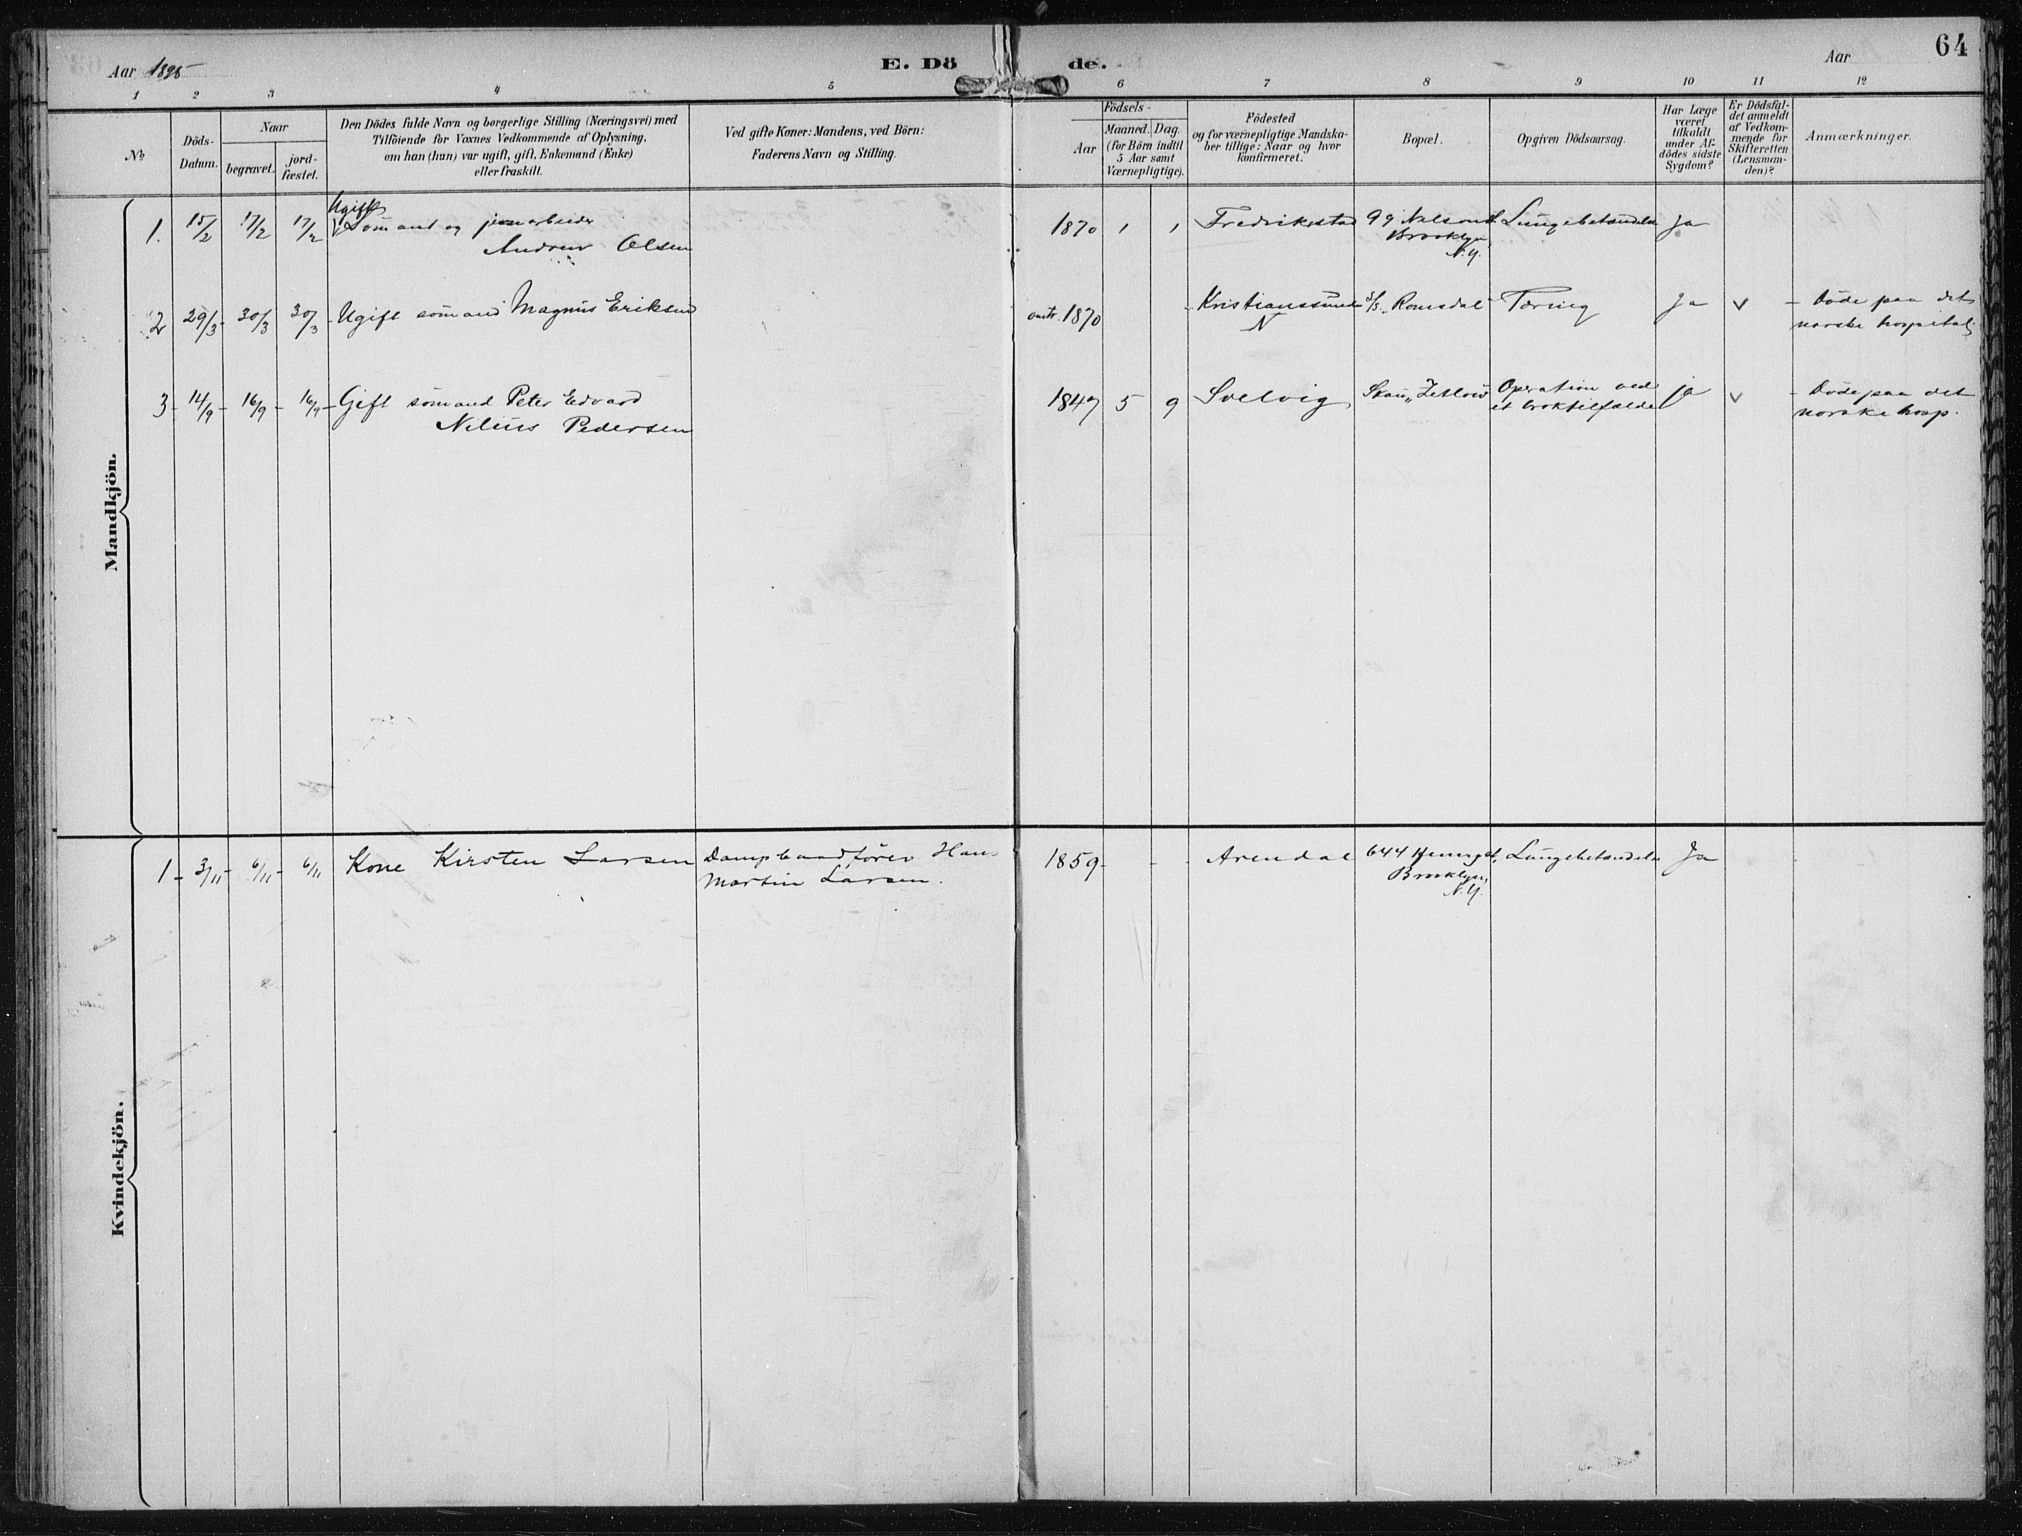 64
Aar 1895
E. Döde.
Aar
1 2 3 4 5 6 7 8 9 10 11 12
No
Döds-Datum.
Naar
begravet.
jord-fæstet.
Den Dödes fulde Navn og borgerlige Stilling (Næringsvei) med
Tilföiende for Voxnes Vedkommende af Oplysning,
om han (hun) var ugift, gift, Enkemand (Enke)
eller fraskilt.
Ved gifte Koner: Mandens, ved Börn:
Faderens Navn og Stilling.
Födsels-
Aar
Maaned. Dag.
(for Börn indtil
5 Aar samt
Værnepligtige).
Födested
og for værnepligtige Mandska-
ber tillige: Naar og hvor
konfirmeret.
Bopæl.
Opgiven Dödsaarsag.
Har Læge
været
tilkaldt
under Af-
dödes sidste
Sygdom?
Er Dödsfal-
det anmeldt
af Vedkom-
mende for
Skifteretten
(Lensman-
den)?
Anmærkninger.
Mandkjön.
1. 15/2 17/2 17/2 Ugift Sömand og jernarbeider
Andrew Olsen
1870 1 1 Fredrikstad 99 Nelson st. Brooklyn N.Y. Lungebetændelse Ja
2 29/3 30/3 30/3 Ugift sömand Magnus Eriksen
omtr. 1870 Kristianssund N S/S „Romsdal" Tæring Ja v - Döde paa det
norske hospital;
3 14/9 16/9 16/9 Gift sömand Peter Edvard
Nilius Pedersen
1847 5 9 Svelvig Skon. „Zetlow Operation ved
et broktilfælde ja v - Döde paa det
norske hosp.
Kvindekjön.
1 3/11 6/11 6/11 Kone Kirsten Larsen Dampbaadförer Hans
Martin Larsen.
1859 - - Arendal 644 Henry st, Brooklyn, N.Y. Lungebetændelse Ja